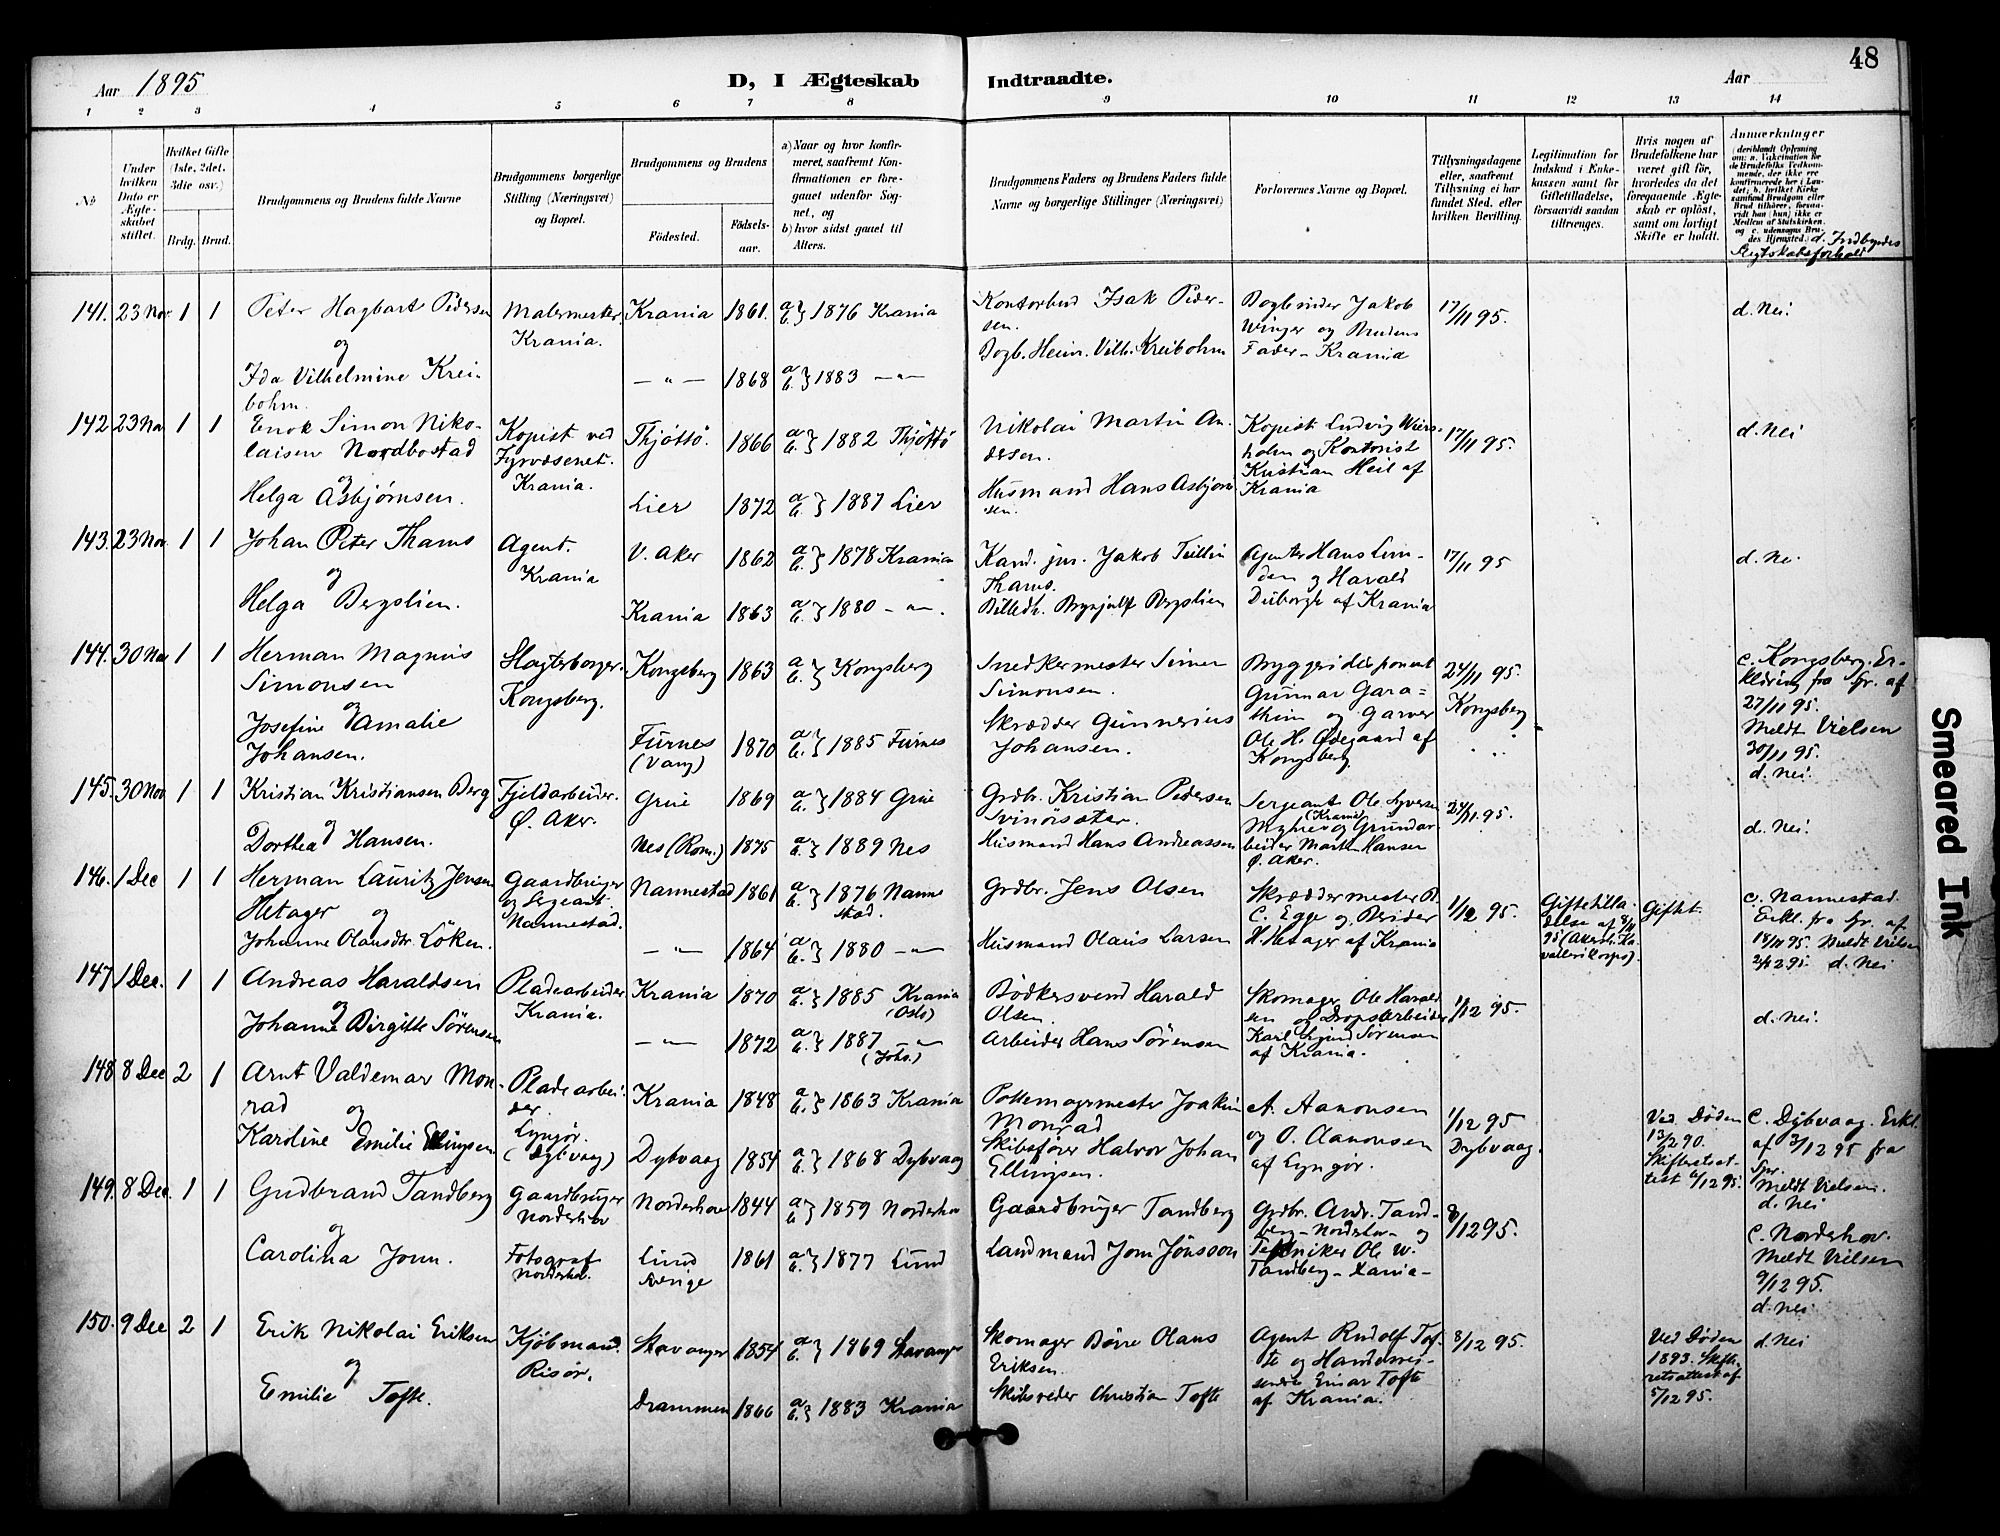 48
Aar 1895
D, I Ægteskab Indtraadte.
Aar
1 2 3 4 5 6 7 8 9 10 11 12 13 14
№
Under hvilken Dato er Ægteskabet stiftet.
Hvilket Gifte (1ste, 2det, 3die osv.)
Brdg. Brud.
Brudgommens og Brudens fulde Navne
Brudgommens borgerlige Stilling (Næringsvei) og Bopæl.
Brudgommens og Brudens
Fødested. Fødselsaar.
a) Naar og hvor konfirmeret, saafremt Konfirmationen er foregaaet udenfor Sognet, og
b) hvor sidst gaaet til Alters.
Brudgommens Faders og Brudens Faders fulde Navne og borgerlige Stillinger (Næringsvei)
Forlovernes Navne og Bopæl.
Tillysningsdagene eller, saafremt Tillysning ei har fundet Sted, efter hvilken Bevilling.
Legitimation for Indskud i Enkekassen samt for Giftetilladelse, forsaavidt saadan tiltrænges.
Hvis nogen af Brudefolkene har været gift før, hvorledes da det foregaaende Ægteskab er opløst, samt om lovligt Skifte er holdt.
Anmærkninger (deriblandt Oplysning om: a. Vakcination for de Brudefolks Vedkommende, der ikke ere konfirmerede her i Landet; b. hvilket Kirkesamfund Brudgom eller Brud tilhører, forsaavidt han (hun) ikke er Medlem af Statskirken, og c. udensogns Brudes Hjemsted.) d. Indbyrdes Slegtskabsforhold
141. 23 Nov 1 1 Peter Hagbart Pedersen og Ida Vilhelmine Kreibohm.
Malermester. Krania.
Krania 1861. a b } 1876 Krania
— " — 1868 a b } 1883 — " —
Kontorbud Isak Pedersen.
Bogb. Heinr. Vilh. Kreibohm
Bogbinder Jakob Winger og Brudens Fader – Krania
17/11 95.
d. Nei.
142 23 Nov 1 1 Enok Simon Nikolaisen Nordbostad og Helga Asbjørnsen.
Kopist ved Fyrvæsenet. Krania.
Thjøttø. 1866 a b } 1882 Thjøttø
Lier 1872 a b } 1887 Lier
Nikolai Martin Andersen.
Husmand Hans Asbjørnsen.
Kopist Ludvig Wiersholm og Kontorist Kristian Heil af Krania
17/11 95.
d. Nei
143. 23 Nov 1 1 Johan Peter Thams og Helga Bergslien.
Agent. Krania
V. Aker 1862 a b } 1878 Krania
Krania 1863 a b } 1880 — " —
Kand. jur. Jakob Tullin Thams.
Billedh. Brynjulf Bergslien
Agenter Hans Linden og Harald Duborgh af Krania
17/11 95
d. Nei
144. 30 Nov 1 1 Herman Magnus Simonsen og Josefine Amalie Johansen.
Slagterborger. Kongsberg.
Kongsberg 1863 a b } Kongsberg
Furnes (Vang) 1870 a b } 1885 Furnes
Snedkermester Simen Simonsen.
Skrædder Gunnerius Johansen.
Bryggeridisponent Gunnar Garathun og Garver Ole H. Ødegaard af Kongsberg
24/11 95. Kongsberg
c. Kongsberg. Erklæring fra Spr. af 27/11 95. Meldt Vielsen 30/11 95. d. Nei.
145. 30 Nov 1 1 Kristian Kristiansen Berg og Dorthea Hansen.
Fjeldarbeider. Ø. Aker.
Grue 1869 a b } 1884 Grue
Nes (Rom.) 1875 a b } 1889 Nes
Grdbr. Kristian Pedersen Svinosæter.
Husmand Hans Andreassen
Sergeant Ole Syversen Myhre (Krania) og Grundarbeider Martin Hansen Ø. Aker.
24/11 95.
d. Nei.
146. 1 Dec 1 1 Herman Lauritz Jensen Hetager og Johanne Olausdtr Løken.
Gaardbruger og Sergeant. Nannestad.
Nannestad 1861 a b } 1876 Nannestad.
— " — 1864 a b } 1880 — " —
Grdbr. Jens Olsen
Husmand Olaus Larsen
Skræddermester B. C. Egge og Berider H. Hetager af Krania
1/12 95.
Giftetilladelse af 8/11 95 (Akersh. Kavallerikorps).
Giftet.
c. Nannestad. Erkl. fra Spr. af 18/11 95. Meldt Vielsen 2/12 95. d. Nei
147. 1 Dec. 1 1 Andreas Haraldsen og Johanne Birgitte Sørensen
Pladearbeider. Krania.
Krania 1870 a b } 1885 Krania (Oslo)
— " — 1872 a b } 1887 — " — (Johs.)
Bødkersvend Harald Olsen.
Arbeider Hans Sørensen
Skomager Ole Haraldsen og Dropsarbeider Karl Sigurd Sørensen af Krania.
1/12 95.
d. Nei.
148 8 Dec 2 1 Arnt Valdemar Monrad og Karoline Emilie Ellingsen
Pladearbeider. Lyngør. (Dybvaag)
Krania 1848 a b } 1863 Krania
Dybvaag 1854 a b } 1868 Dybvaag
Pottemagermester Joakim Monrad
Skibsfører Halvor Johan Ellingsen.
A. Aanonsen og O. Aanonsen af Lyngør.
1/12 95 Dybvaag.
Ved Døden 13/2 90. Skifteretsattest 6/12 95.
C. Dybvaag. Erkl. af 3/12 95 fra Spr. Meldt Vielsen. d. Nei
149. 8 Dec. 1 1 Gudbrand Tandberg og Carolina Jonn.
Gaardbruger Norderhov
Fotograf Norderhov.
Norderhov 1844 a b } 1859 Norderhov
Lund Sverige 1861 a b } 1877 Lund
Gaardbruger Tandberg
Landmand Jom Jønsson
Grdbr. Andr. Tandberg – Norderhov – og Tekniker Ole W. Tandberg – Krania –
8/12 95.
C. Norderhov. Meldt Vielsen 9/12 95. d. Nei
150. 9 Dec 2 1 Erik Nikolai Eriksen og Emilie Tofte.
Kjøbmand. Risør.
Stavanger 1854 a b } 1869 Stavanger
Drammen 1866 a b } 1883 Krania
Skomager Børre Olaus Eriksen.
Skibsreder Christian Tofte
Agent Rudolf Tofte og Handelsreisende Einar Tofte af Krania.
8/12 95.
Ved Døden 1893. Skifteretsattest af 5/12 95.
d. Nei
Smeared Ink